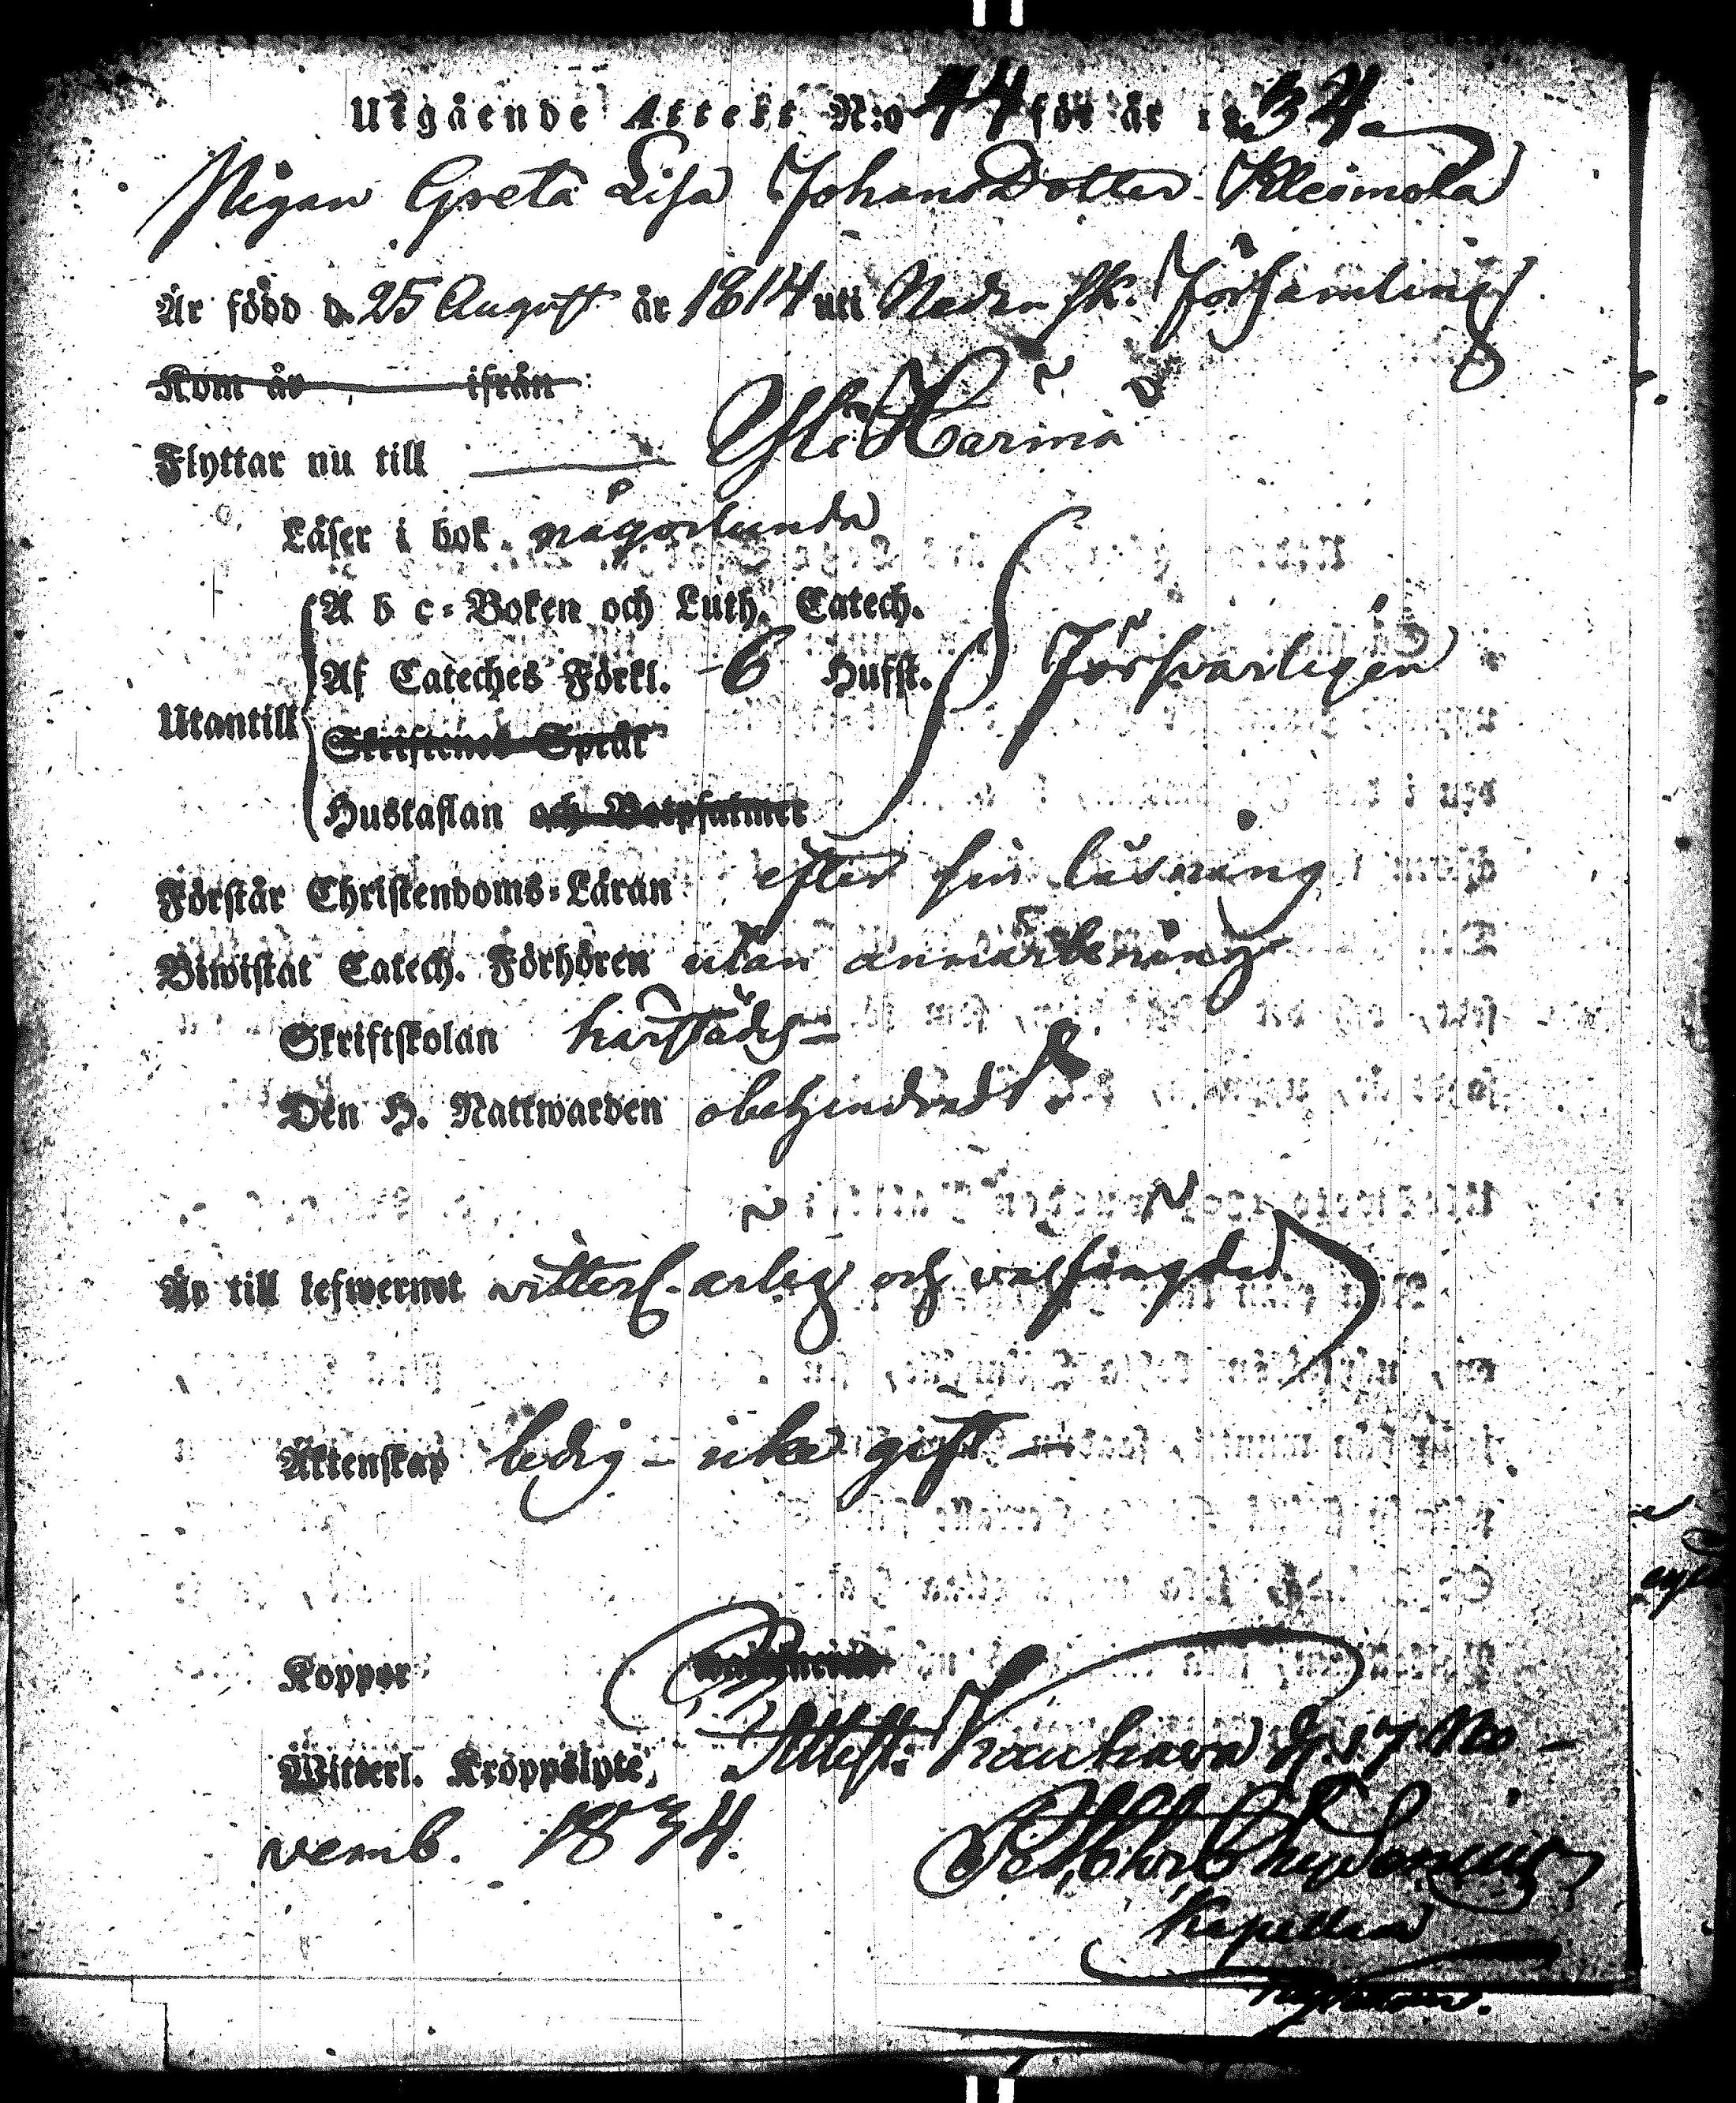 Utgående Attest N:o 44 för år 1834
Pigan Greta Lisa Johansdotter Kleimola
Är född d. 25 August år 1814 uti Neder sk. Församling
Kom år ifrån
Flyttar nu till Yli Härmä
Läser i bok någorlunda
A b c-Boken och Luth. Catech.
Af Cateches Förkl. 6 Hufst. Försvarligen
Utantill
Skriftenes Språk
Hustaflan och Botpsalmer
Förstår Christendoms-Läran efter sin läsning
Biwistat Catech. Förhören utan anmärkning
Skriftskolan härstädes
Den H. Nattwarden obehindrad
Är till lefwernet witterl. ärlig och
Äktenskap ledig - icke gift -
Koppor
Witterl. Kroppslyte, Attest. Kauhava d. 17 No-
vemb. 1834.
Chydenius
Kapellan